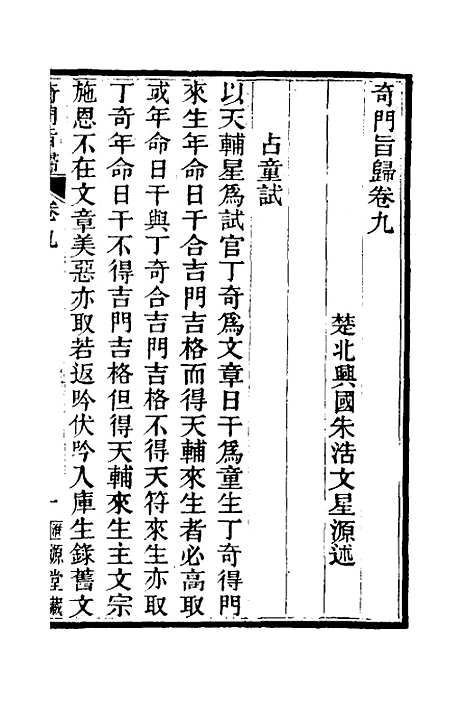 奇門旨歸卷九
楚北興國朱浩文星源述
占童試
以天輔星爲試官丁奇爲文章日干爲童生丁奇得門
來生年命日干合吉門吉格而得天輔來生者必高取
或年命日干與丁奇合吉門吉格不得天符來生亦取
丁奇年命日干不得吉門吉格但得天輔來生主文宗
施恩不在文章美惡亦取若返吟伏吟入庫生錄舊文
奇門旨歸 卷九 一 滙源堂藏